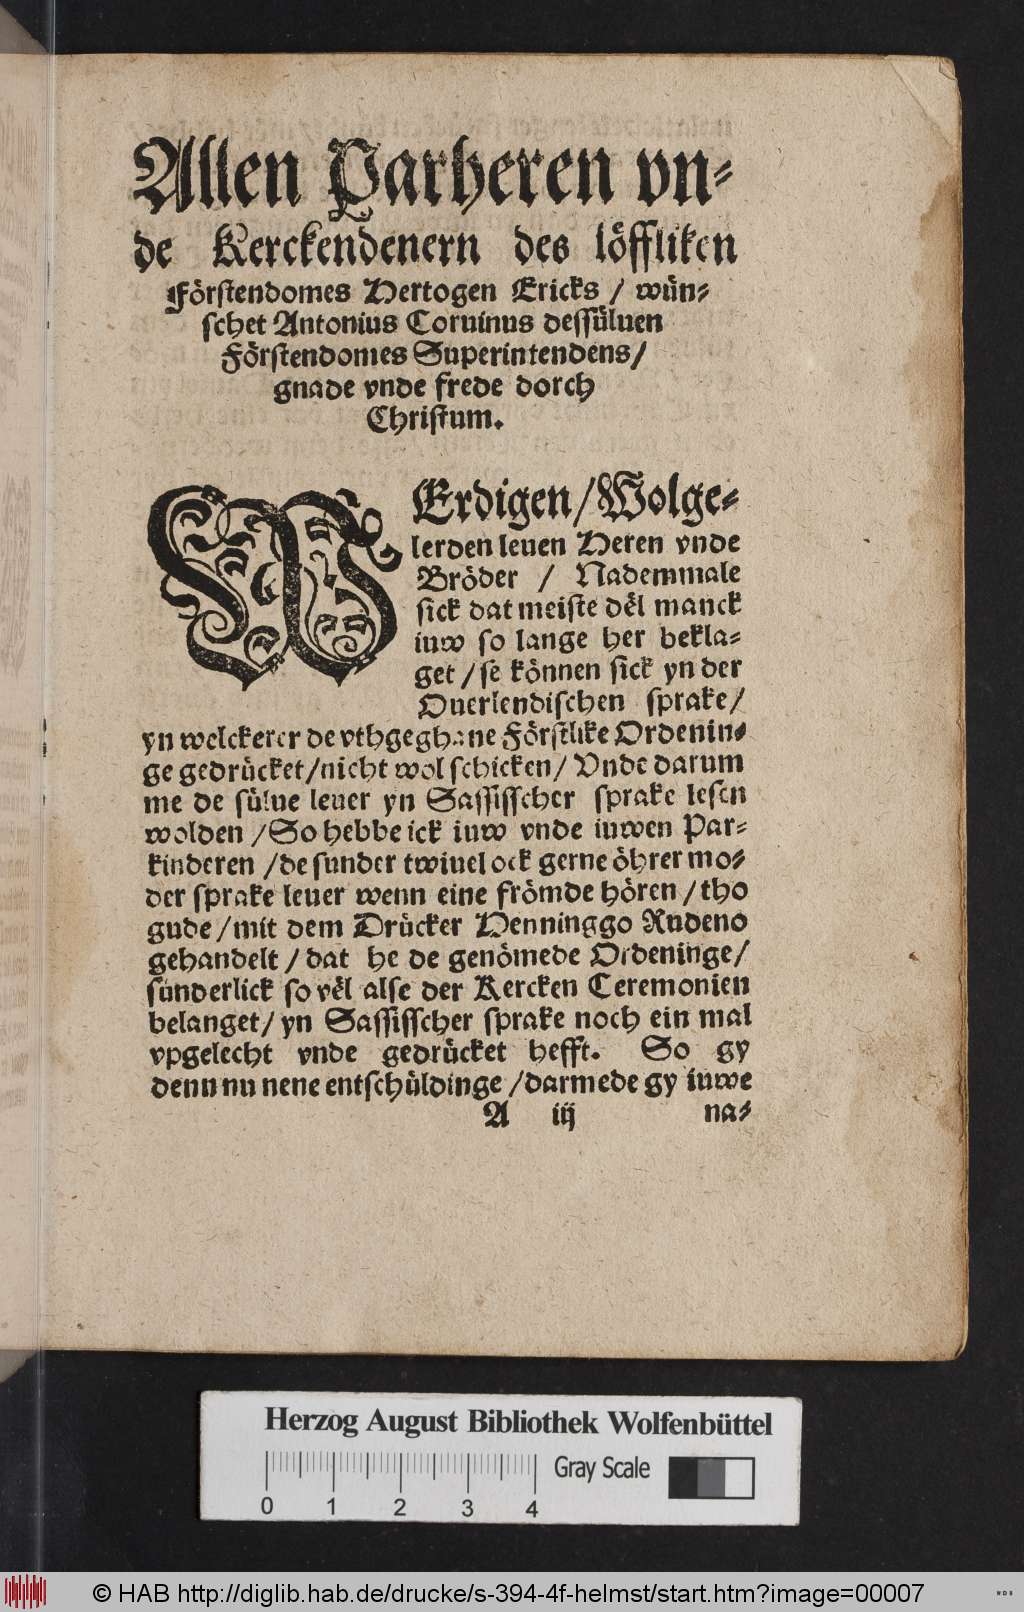 Allen Parheren vn⸗
de Kerckendenern des löffliken
Förstendomes Hertogen Ericks / wün⸗
schet Antonius Coruinus dessüluen
Förstendomes Superintendens /
gnade vnde frede dorch
Christum.
WErdigen / Wolge⸗
lerden leuen Heren vnde
Bröder / Nademmale
sick dat meiste dël manck
iuw so lange her bekla⸗
get / se können sick yn der
Ouerlendischen sprake /
yn welckerer de vthgeghane Förstlike Ordenin⸗
ge gedrücket / nicht wol schicken / Vnde darum
me de sülue leuer yn Sassisscher sprake lesen
wolden / So hebbe ick iuw vnde iuwen Par⸗
kinderen / de sunder twiuel ock gerne öhrer mo⸗
der sprake leuer wenn eine frömde hören / tho
gude / mit dem Drücker Henninggo Rudeno
gehandelt / dat he de genömede Ordeninge /
sünderlick so vël alse der Kercken Ceremonien
belanget / yn Sassisscher sprake noch ein mal
vpgelecht vnde gedrücket hefft. So gy
denn nu nene entschüldinge / darmede gy iuwe
A iij na⸗
Herzog August Bibliothek Wolfenbüttel
0 1 2 3 4 Gray Scale
© HAB http://diglib.hab.de/drucke/s-394-4f-helmst/start.htm?image=00007